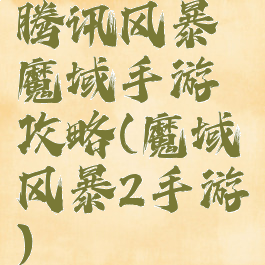 腾讯风暴
魔域手游
攻略(魔域
风暴2手游
)